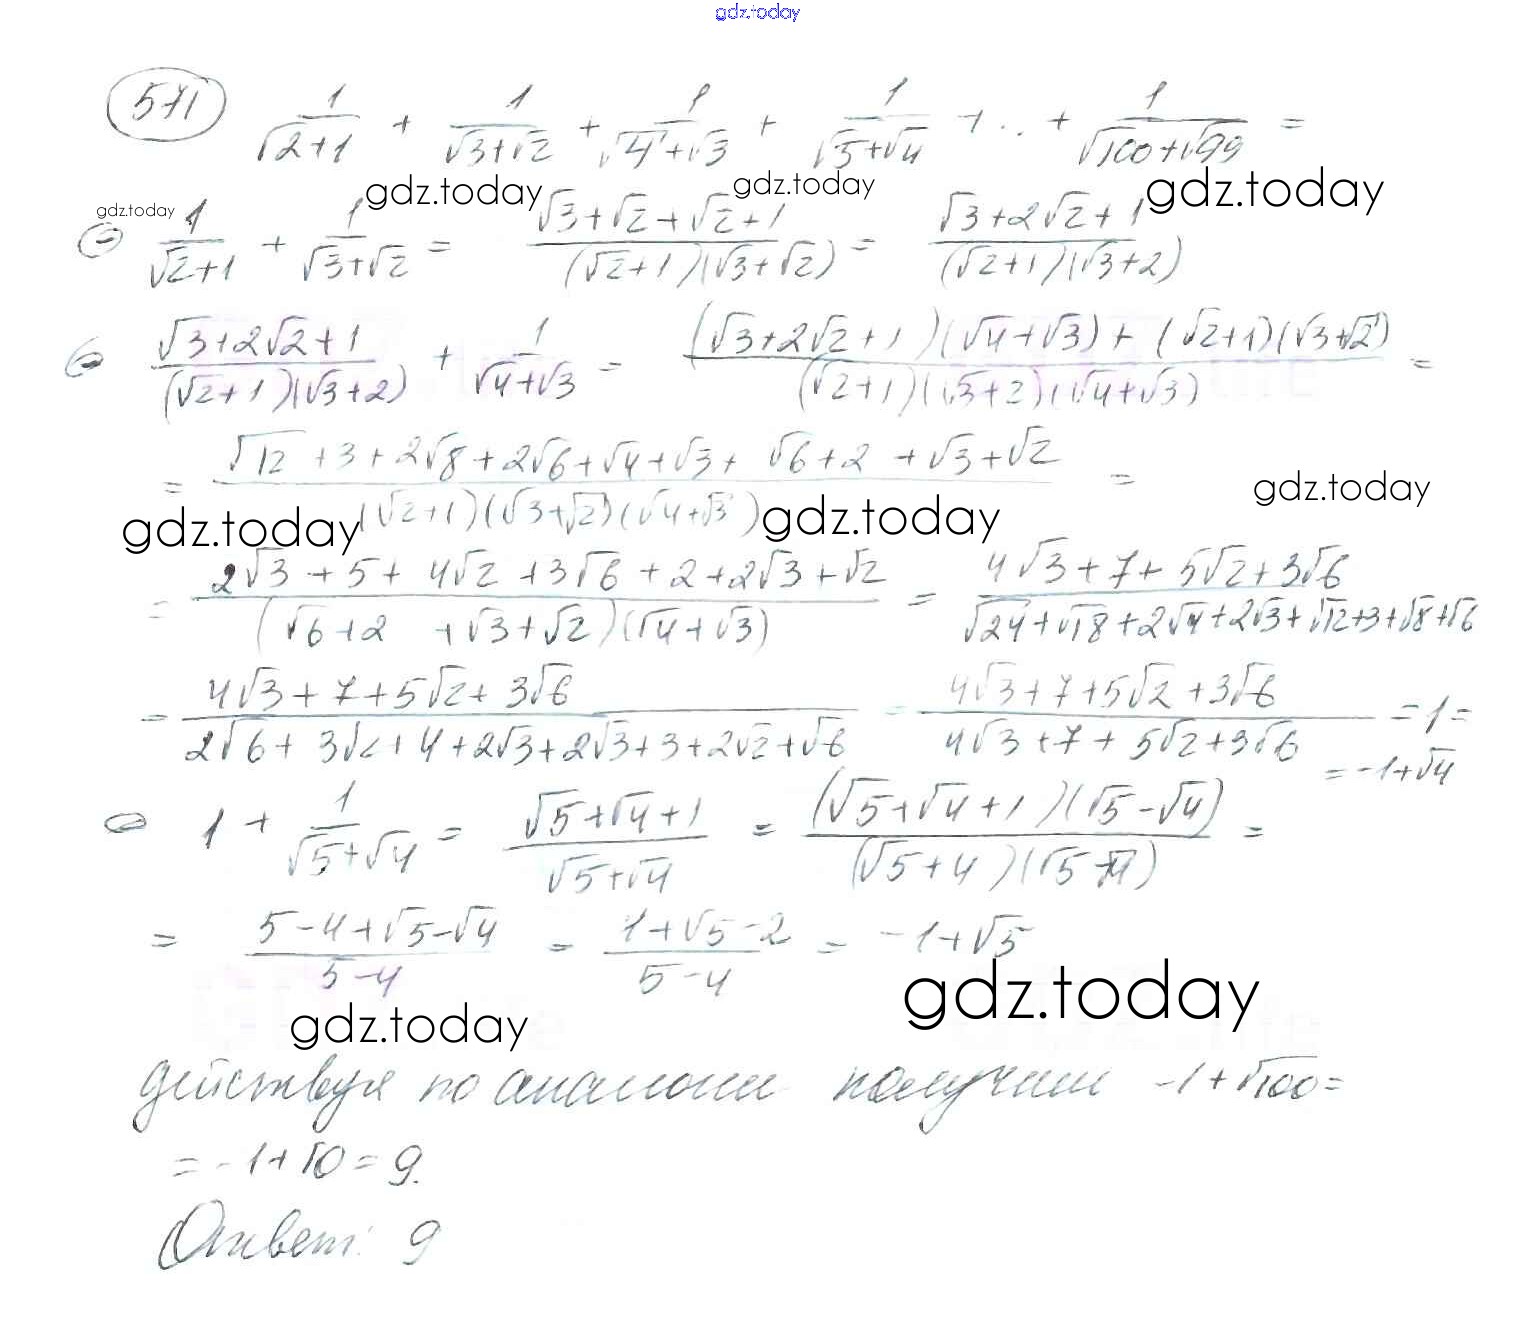 gdz.today
571 1/(√2+1) + 1/(√3+√2) + 1/(√4+√3) + 1/(√5+√4) + .. + 1/(√100+√99) =
gdz.today gdz.today gdz.today gdz.today
= 1/(√2+1) + 1/(√3+√2) = (√3+√2+√2+1)/((√2+1)(√3+√2)) = (√3+2√2+1)/((√2+1)(√3+2))
= (√3+2√2+1)/((√2+1)(√3+2)) + 1/(√4+√3) = ((√3+2√2+1)(√4+√3)+(√2+1)(√3+√2))/((√2+1)(√3+2)(√4+√3)) =
= (√12+3+2√8+2√6+√4+√3+√6+2+√3+√2)/((√2+1)(√3+√2)(√4+√3)) =
gdz.today gdz.today gdz.today
= (2√3+5+4√2+3√6+2+2√3+√2)/((√6+2+√3+√2)(√4+√3)) = (4√3+7+5√2+3√6)/(√24+√18+2√4+2√3+√12+3+√8+√6)
= (4√3+7+5√2+3√6)/(2√6+3√2+4+2√3+2√3+3+2√2+√6) = (4√3+7+5√2+3√6)/(4√3+7+5√2+3√6) = 1 =
= -1+√4
= 1 + 1/(√5+√4) = (√5+√4+1)/(√5+√4) = ((√5+√4+1)(√5-√4))/((√5+4)(√5-√4)) =
= (5-4+√5-√4)/(5-4) = (1+√5-2)/(5-4) = -1+√5
gdz.today gdz.today
действуя по аналогии получим -1+√100 =
= -1+10 = 9.
Ответ: 9